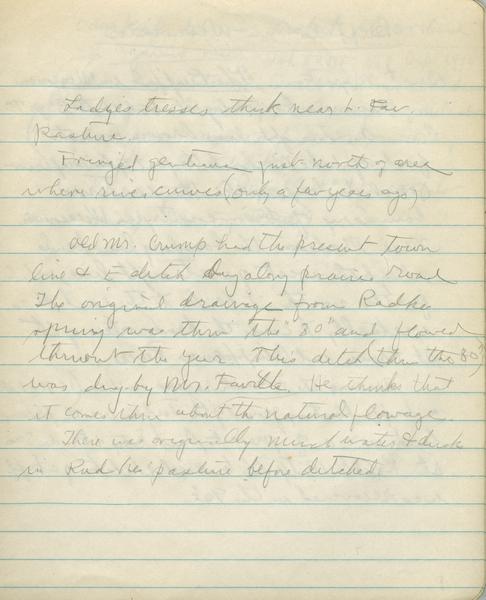 Ladyes tresses thick near L. Fav.
Pasture.
Fringed gentians just north of area
where river curves (only a few years ago)
Old Mr. Crump had the present town
line & E ditch Dug along prairie road
The original drainage from Radke
spring was thru the "80" and flowed
thruout the year This ditch (thru the 80")
was dug by Mr. Faville. He thinks that
it comes thru about the natural flowage.
There was originally much water & duck
in Radkes pasture before ditched